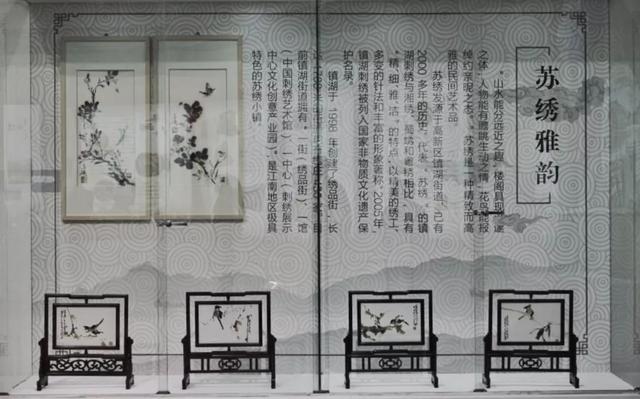 苏绣雅韵
“山水能分远近之趣，楼阁具现深邃
之体，人物能有瞻眺生动之情，花鸟能报
绰约亲昵之态”。苏绣是一种精致而高
雅的民间艺术品。
苏绣发源于高新区镇湖街道，已有
2000多年的历史。代表“苏绣”的镇
湖刺绣与湘绣、蜀绣和粤绣相比，具有
“精、细、雅、洁”的特点，以精美的绣工、
多变的针法和丰富的形象著称，2005年
镇湖刺绣被列入国家非物质文化遗产保
护名录。
镇湖于1998年创建了绣品街，长
目
前镇湖街道拥有一街（绣品街）、一馆
（中国刺绣艺术馆）、一中心（刺绣展示
中心文化创意产业园），是江南地区极具
特色的苏绣小镇。